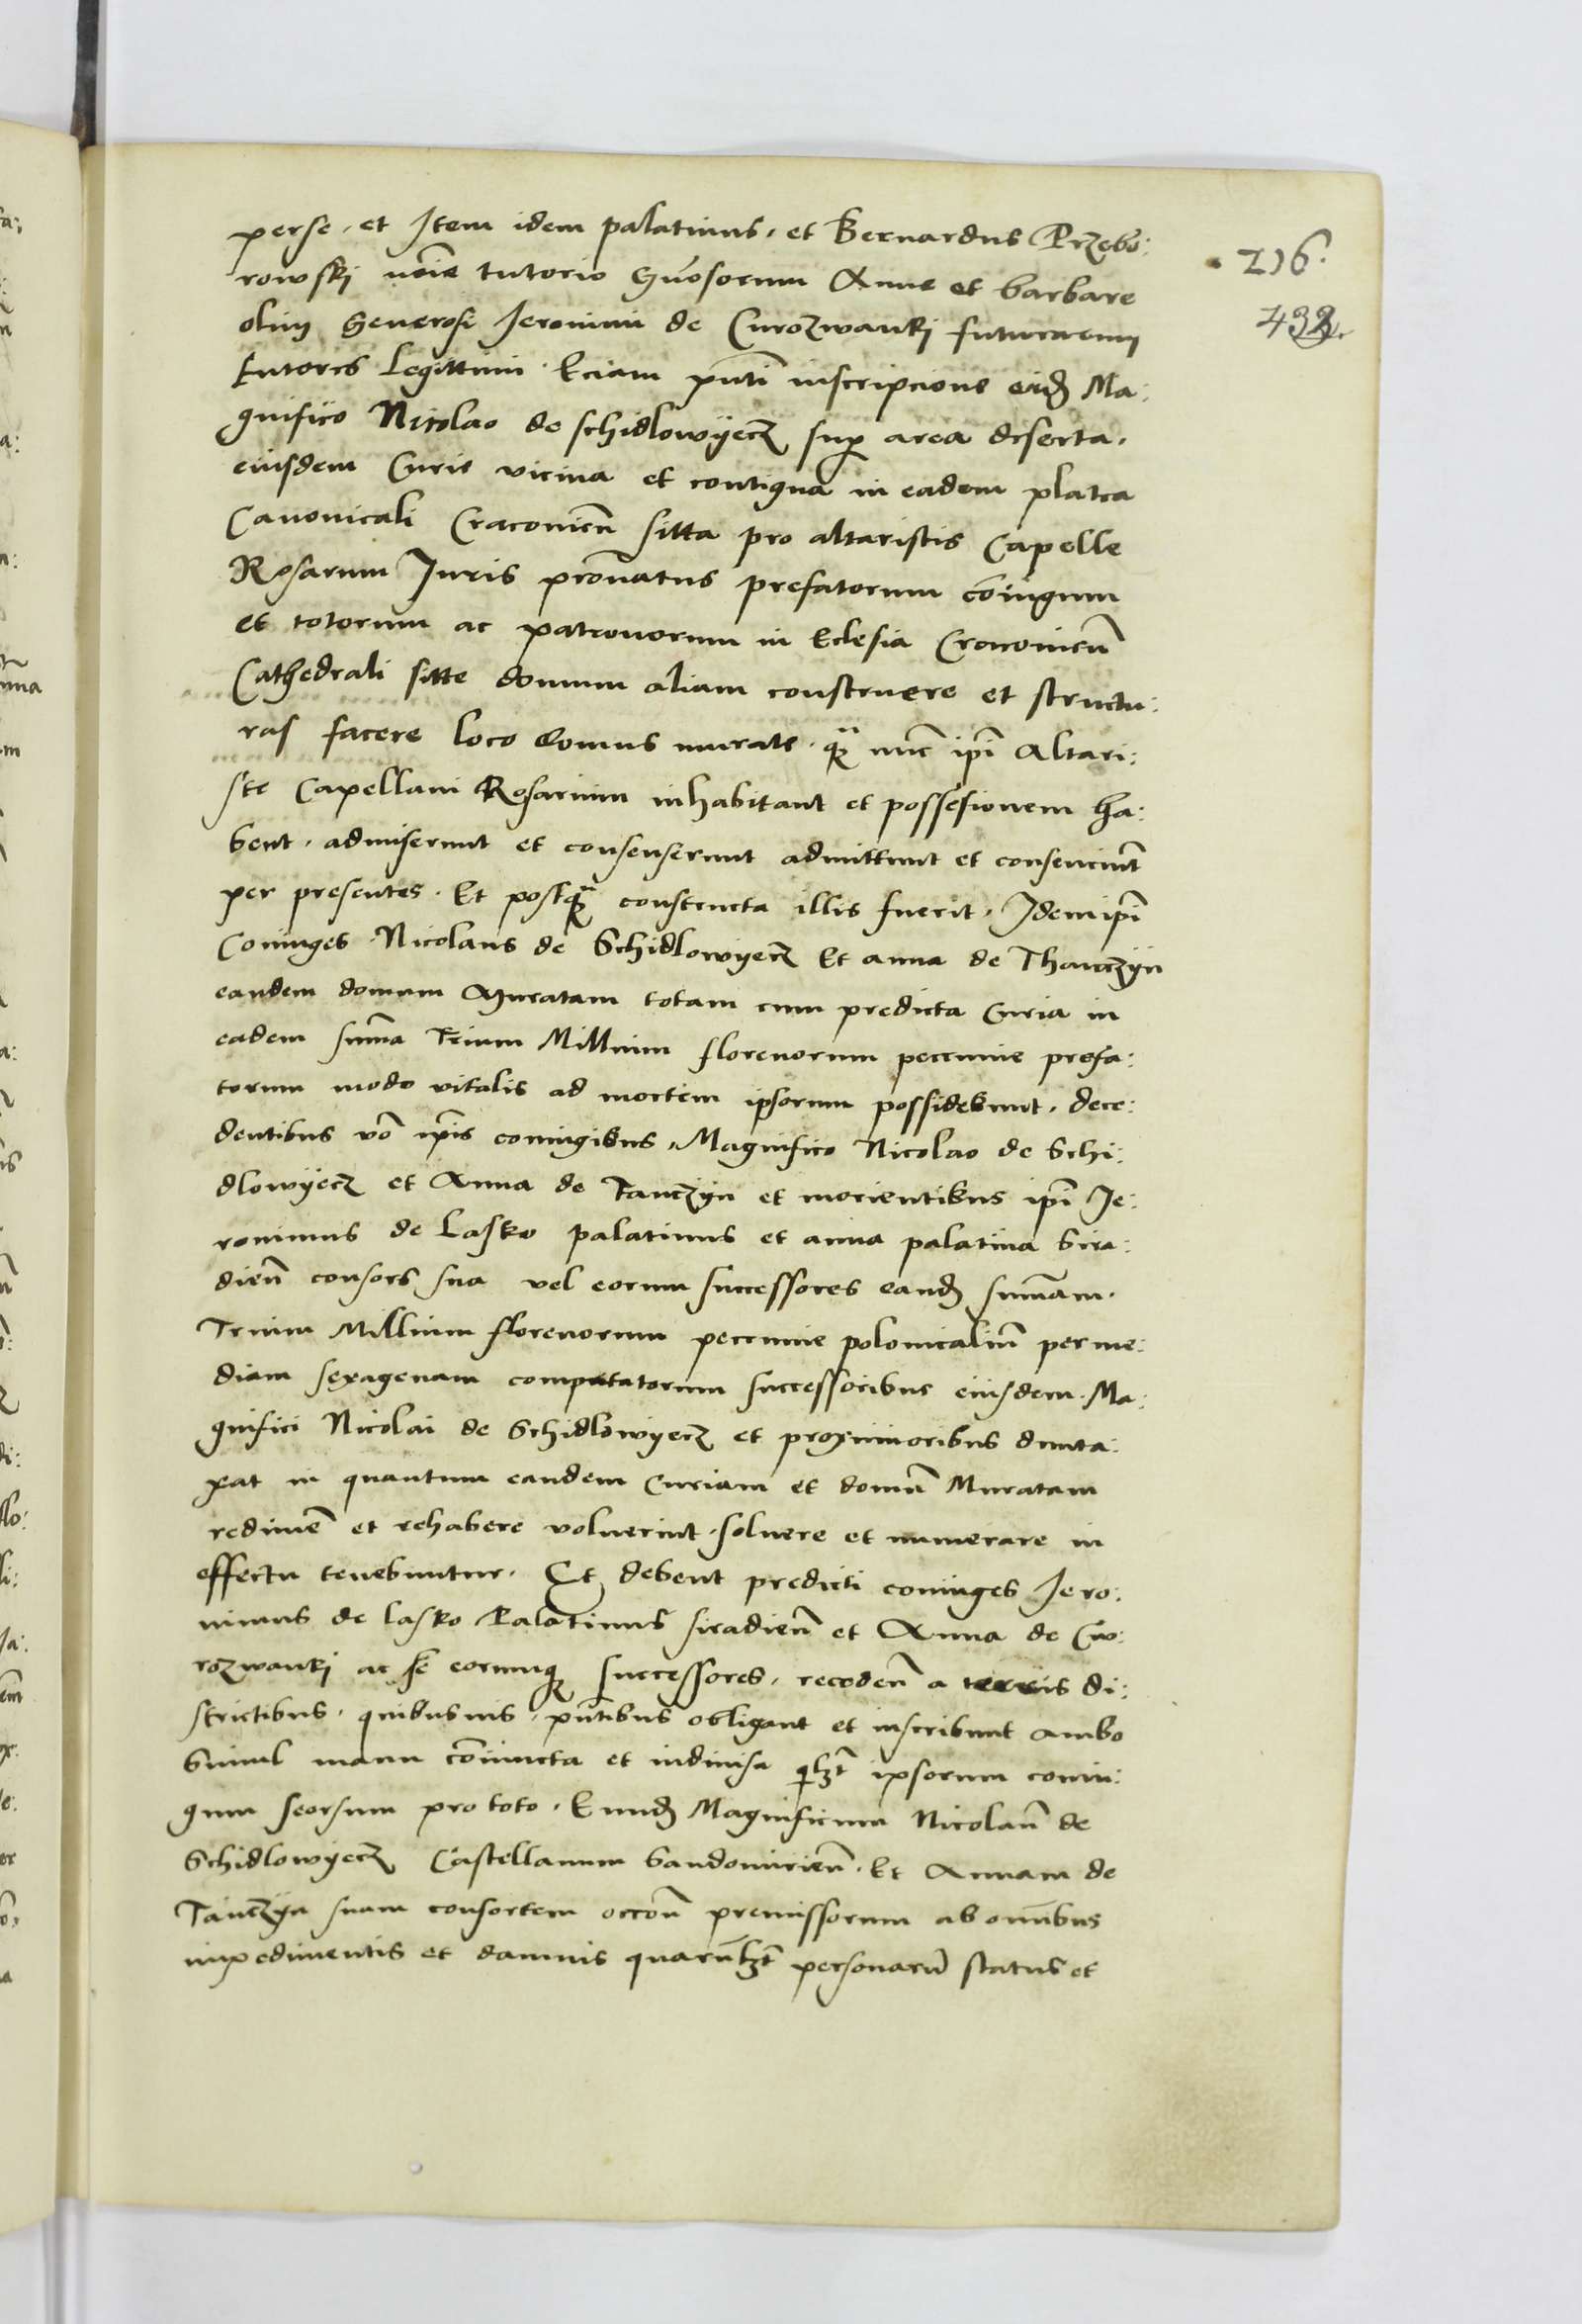 perse. et Item idem palatinus. et Bernardus Przebo:
rowski noīe tutorio Gn̄osorum Anne et barbare
olim Generosi Ieronimi de Curozwanki futurarum
tutores legittimi. Eciam pn̄ti inscripcione eid Ma:
gnifico Nicolao de schidlowyecz sup area deserta.
eiusdem Curie vicina et contigua in eadem platea
Canonicali Cracoviēn sitta pro altaristis Capelle
Rosarum Iuris pronatus prefatorum cōiugum
et totorum ac patronorum in Eclesia Crocoviēn
Cathedrali sitte domum aliam construere et structu:
ras facere loco domus murate. quā nūc ip̄i Altari:
ste Capellani Rosarium inhabitant et possesionem ha:
bent. admiserunt et consenserunt admittunt et consenciūt
per presentes. Et postquā constructa illis fuerit. Idem ip̄i
Coniuges Nicolaus de Schidlowyecz Et anna de Thanczyn
eandem domum Muratam totam cum predicta Curia in
eadem sum̄a Trium Millium florenorum peccunie prefa:
torum modo vitalis ad mortem ipsorum possidebunt. dece:
dentibus vō ip̄is coniugibus. Magnifico Nicolao de Schi:
dlowyecz et Anna de Tanczyn et morientibus ip̄i Ie:
ronimus de Lasko palatinus et anna palatina Sira:
diēn consors sua vel eorum successores eand sum̄am.
Trium Millium florenorum peccunie polonicaliūm per me:
diam sexagenam computatorum successoribus eiusdem Ma:
gnifici Nicolai de Schidlowyecz et proximioribus dunta:
xat in quantum eandem Curiam et domū Muratam
redimē et rehabere voluerint. soluere et numerare in
effectu tenebuntur. Et debent predicti coniuges Iero:
nimus de lasko Palatinus siradiēn et Anna de Cw:
rozwanki ac sē eorumq successores. recedēn a terris di:
strictibus. quibusvis. pn̄tibus obligant et inscribunt ambo
Simul manu cōiuncta et indivisa qlzt ipsorum coniu:
gum seorsum pro toto. Eund Magnificum Nicolaū de
Schidlowyecz Castellanum Sandomiriēn. Et Annam de
Tanczyn suam consortem occōn premissorum ab omībus
impedimentis et damnis quarūlzt personarū status et
216.
432.